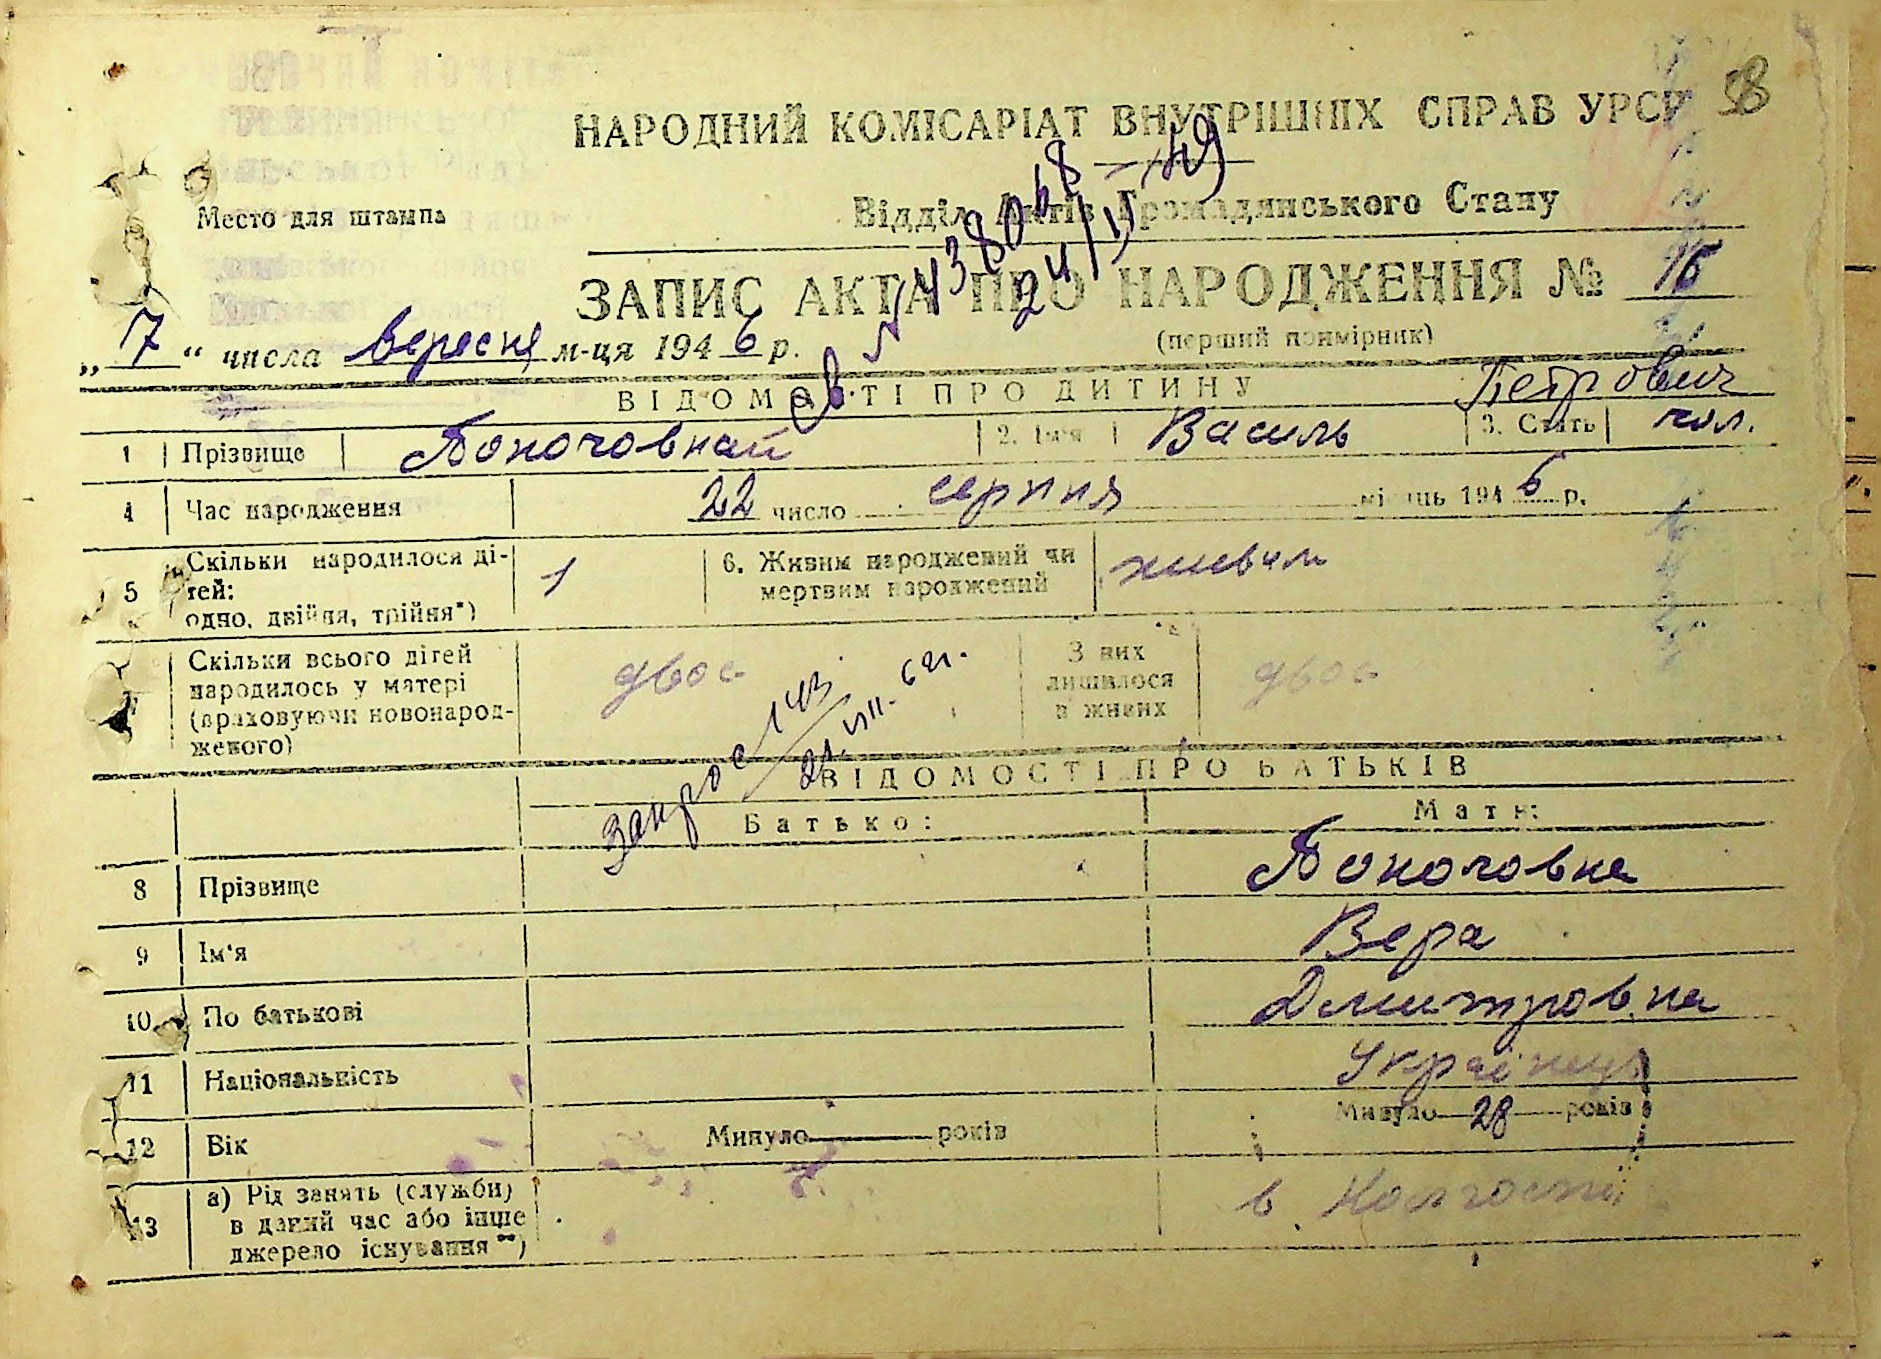 НАРОДНИЙ КОМІСАРІАТ ВНУТРІШНІХ СПРАВ УРСР
Место для штампа
Відділ Актів Громадянського Стану
ЗАПИС АКТА ПРО НАРОДЖЕННЯ № 16
(перший примірник)
„7“ числа вересня м-ця 1946 р.
ВІДОМОСТІ ПРО ДИТИНУ
Петрович
1 Прізвище 2. Ім'я Василь 3. Стать чол.
4 Час народження 22 число серпня місяць 1946 р.
5 Скільки народилося дітей: одно, двійня, трійня*) 1 6. Живим народжений чи мертвим народжений живим
Скільки всього дітей народилось у матері (враховуючи новонародженого) двоє З них лишилося в живих двоє
Запрос 143
ВІДОМОСТІ ПРО БАТЬКІВ
Батько: Мати:
8 Прізвище
9 Ім'я Вера
10 По батькові Дмитровна
11 Національність Українець
12 Вік Минуло — років Минуло 28 років
13 а) Рід занять (служби) в даний час або інше джерело існування**) в колгоспі